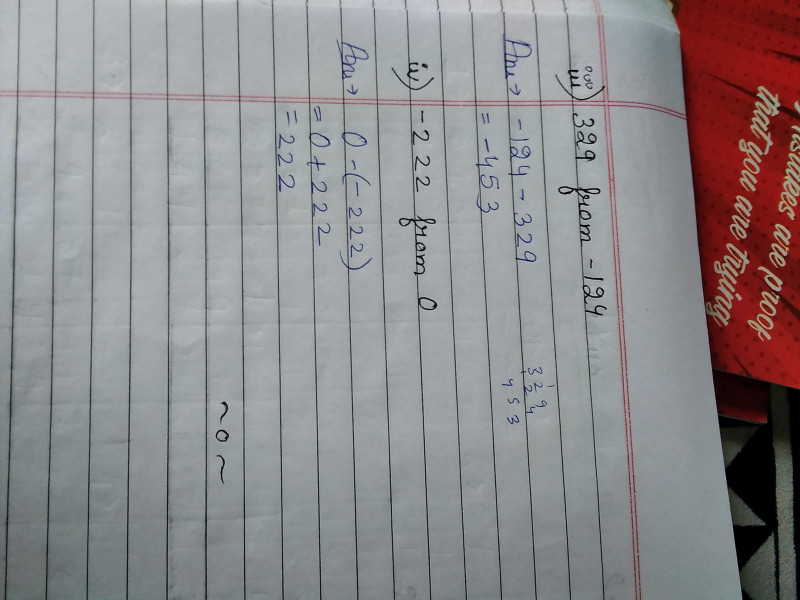 iii) 329 from -124
Ans→ -124 - 329
= -453
329
124
453
iv) -222 from 0
Ans→ 0-(-222)
= 0+222
= 222
~0~
are proof
that you are trying